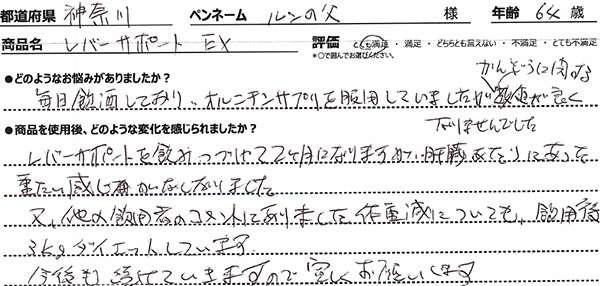 都道府県 神奈川 ペンネーム ルンの父 様 年齢 64 歳
商品名 レバーサポートEX 評価 とても満足・満足・どちらとも言えない・不満足・とても不満足
*○で囲んでお選びください。
●どのようなお悩みがありましたか?
かんぞうに関する
毎日飲酒しており、オルニチンサプリを服用していましたが数値が良く
なりませんでした
●商品を使用後、どのような変化を感じられましたか?
レバーサポートを飲みつづけて2ヶ月になりますが、肝臓あたりにあった
重たい感じがなくなりました
又、他の飲用者のコメントにありました体重減についても、飲用後
3kgダイエットしています
今後も続けていきますので宜しくお願いします